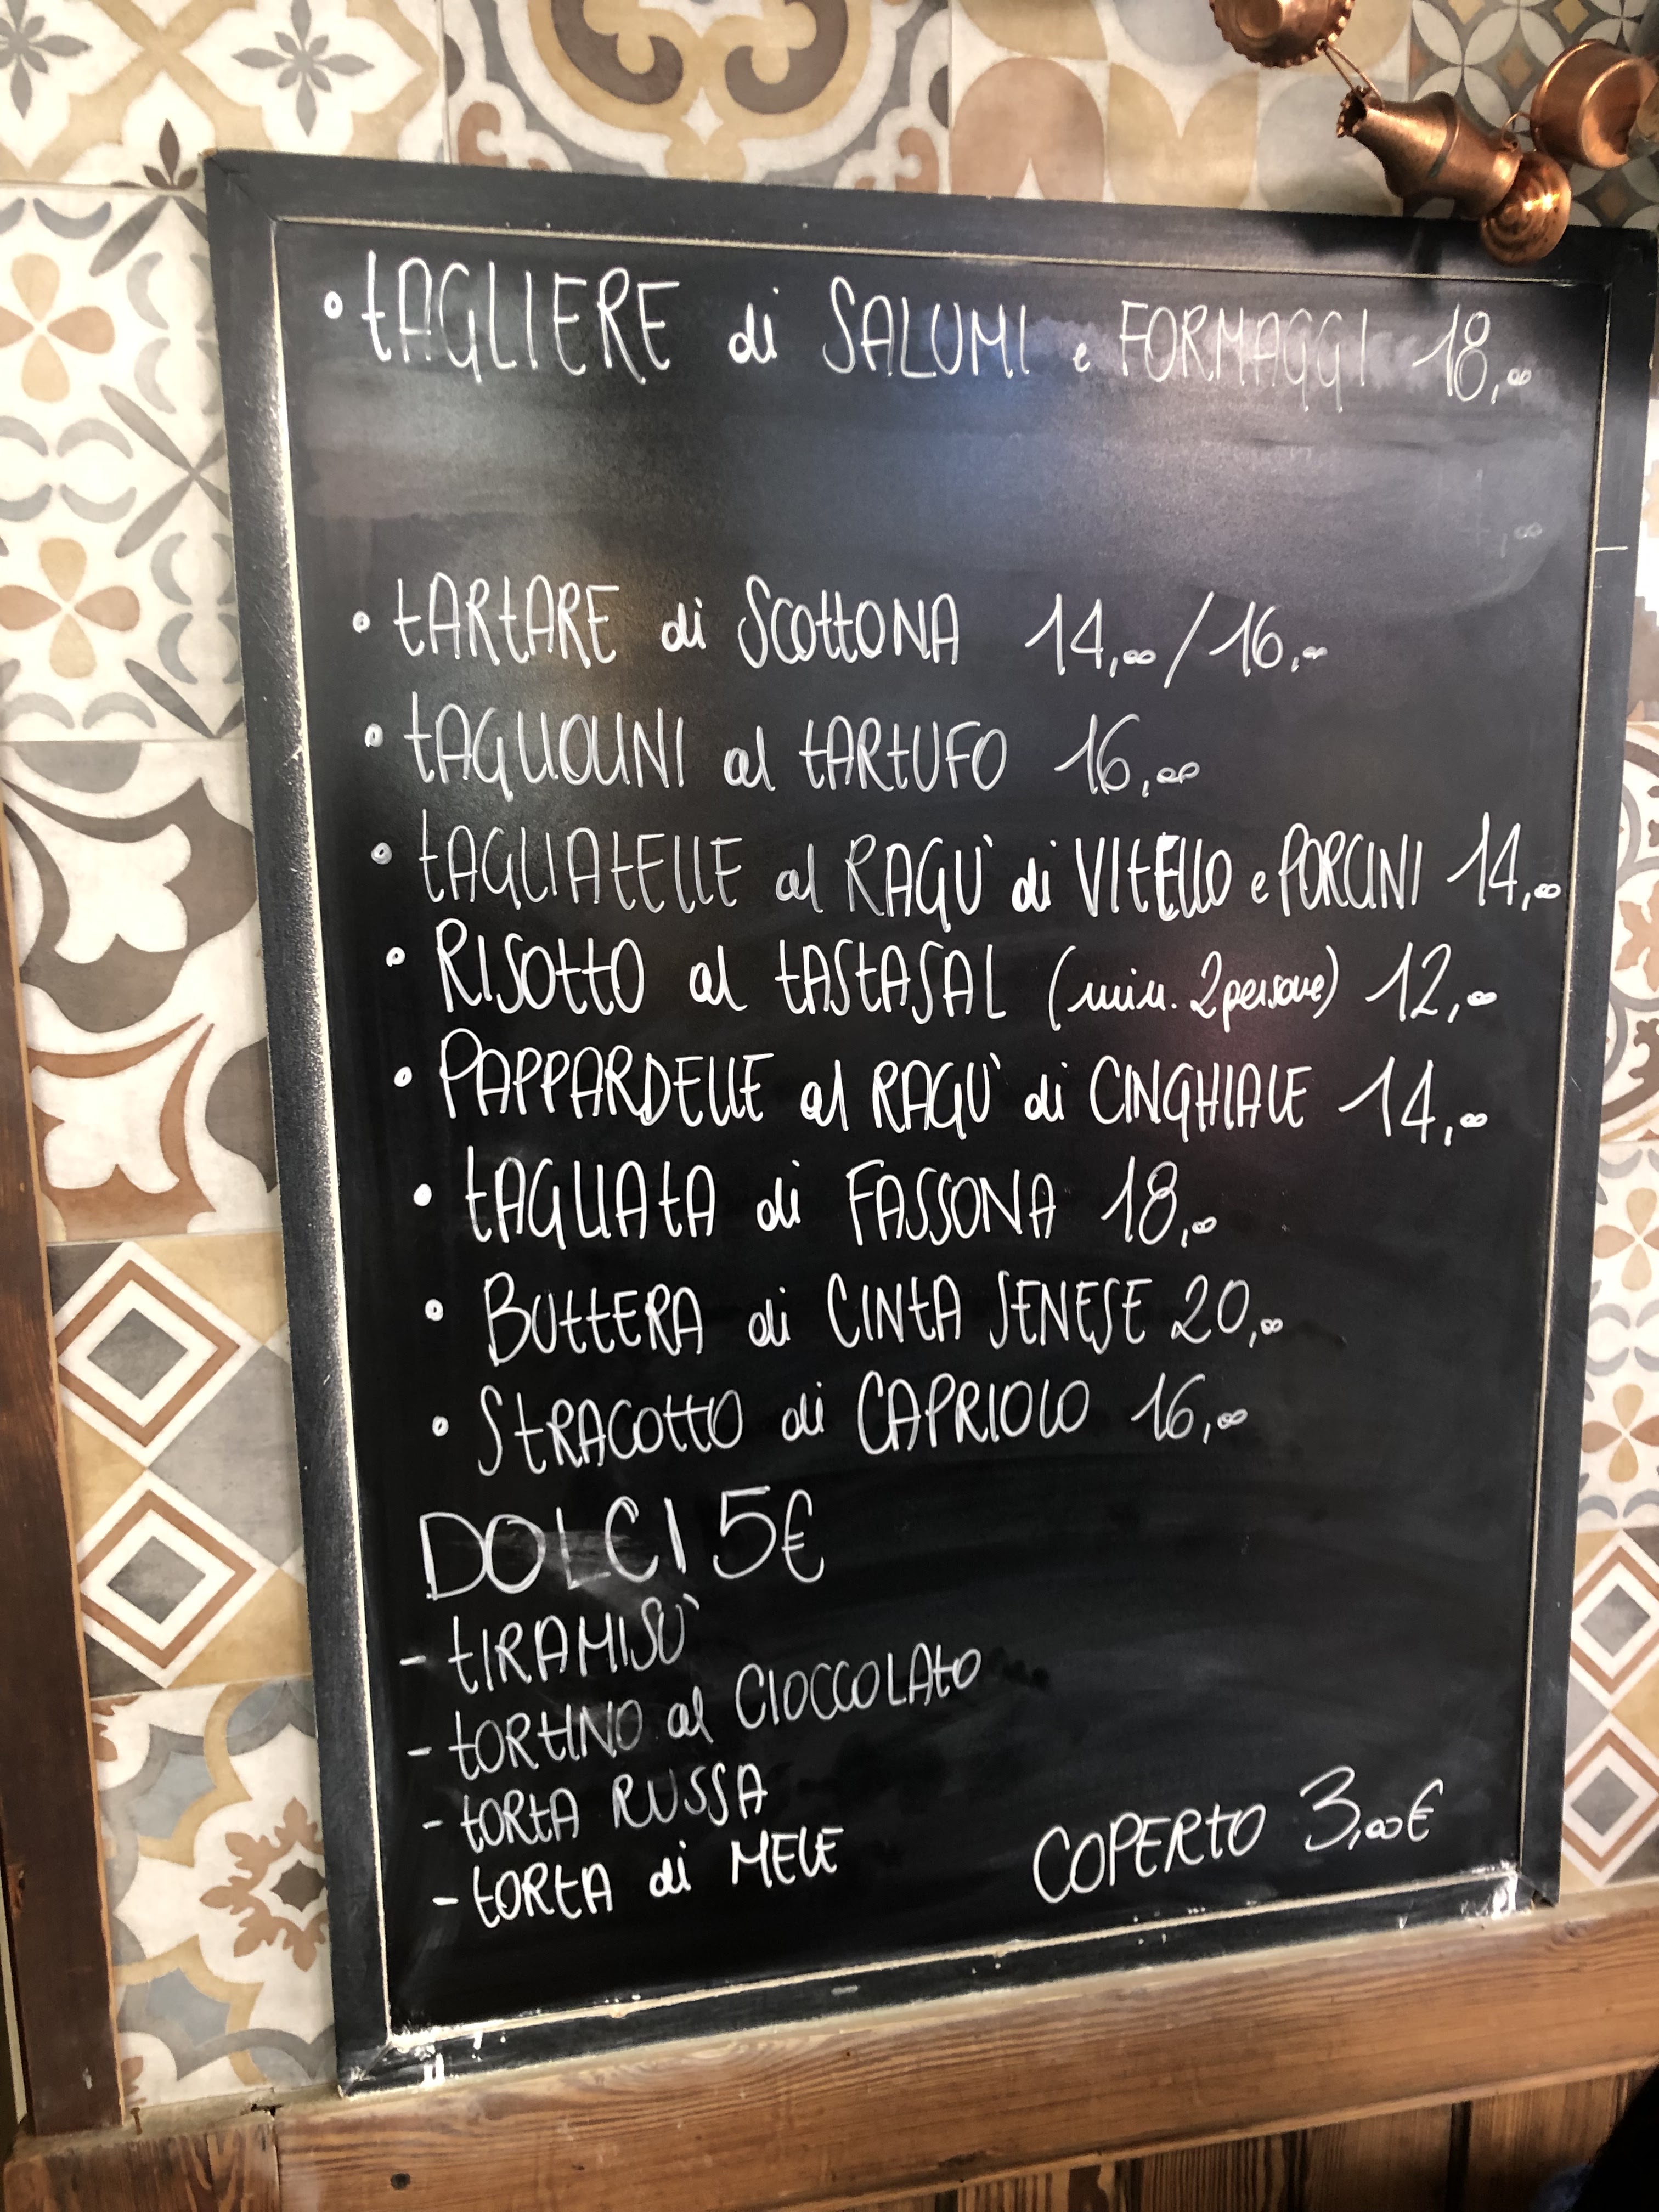 • tAGLIERE di SALUMI e FORMAGGI 18,00
• tARtARE di SCOttONA 14,00/16,00
• tAGLIOLINI al tARtUFO 16,00
• tAGLIAtELLE al RAGU' di VItELLO e PORCINI 14,00
• RISOttO al tAStASAL (min. 2 persone) 12,00
• PAPPARDELLE al RAGU' di CINGHIALE 14,00
• tAGLIAtA di FASSONA 18,00
• BOttERA di CINtA SENESE 20,00
• StRACOttO di CAPRIOLO 16,00
DOLCI 5€
- tIRAMISU'
- tORtINO al CIOCCOLAtO
- tORtA RUSSA
- tORtA di MELE
COPERtO 3,00€